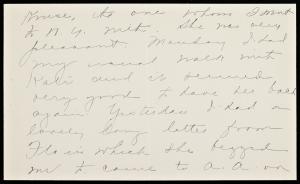 Kruse, the one whom I went
to N.Y. with. She was very
pleasant. Monday I had
my usual walk with
Kari and it seemed
very good to have her back
again. Yesterday I had a
lovely long letter from
Flo in which she begged
me to come to A.A. on